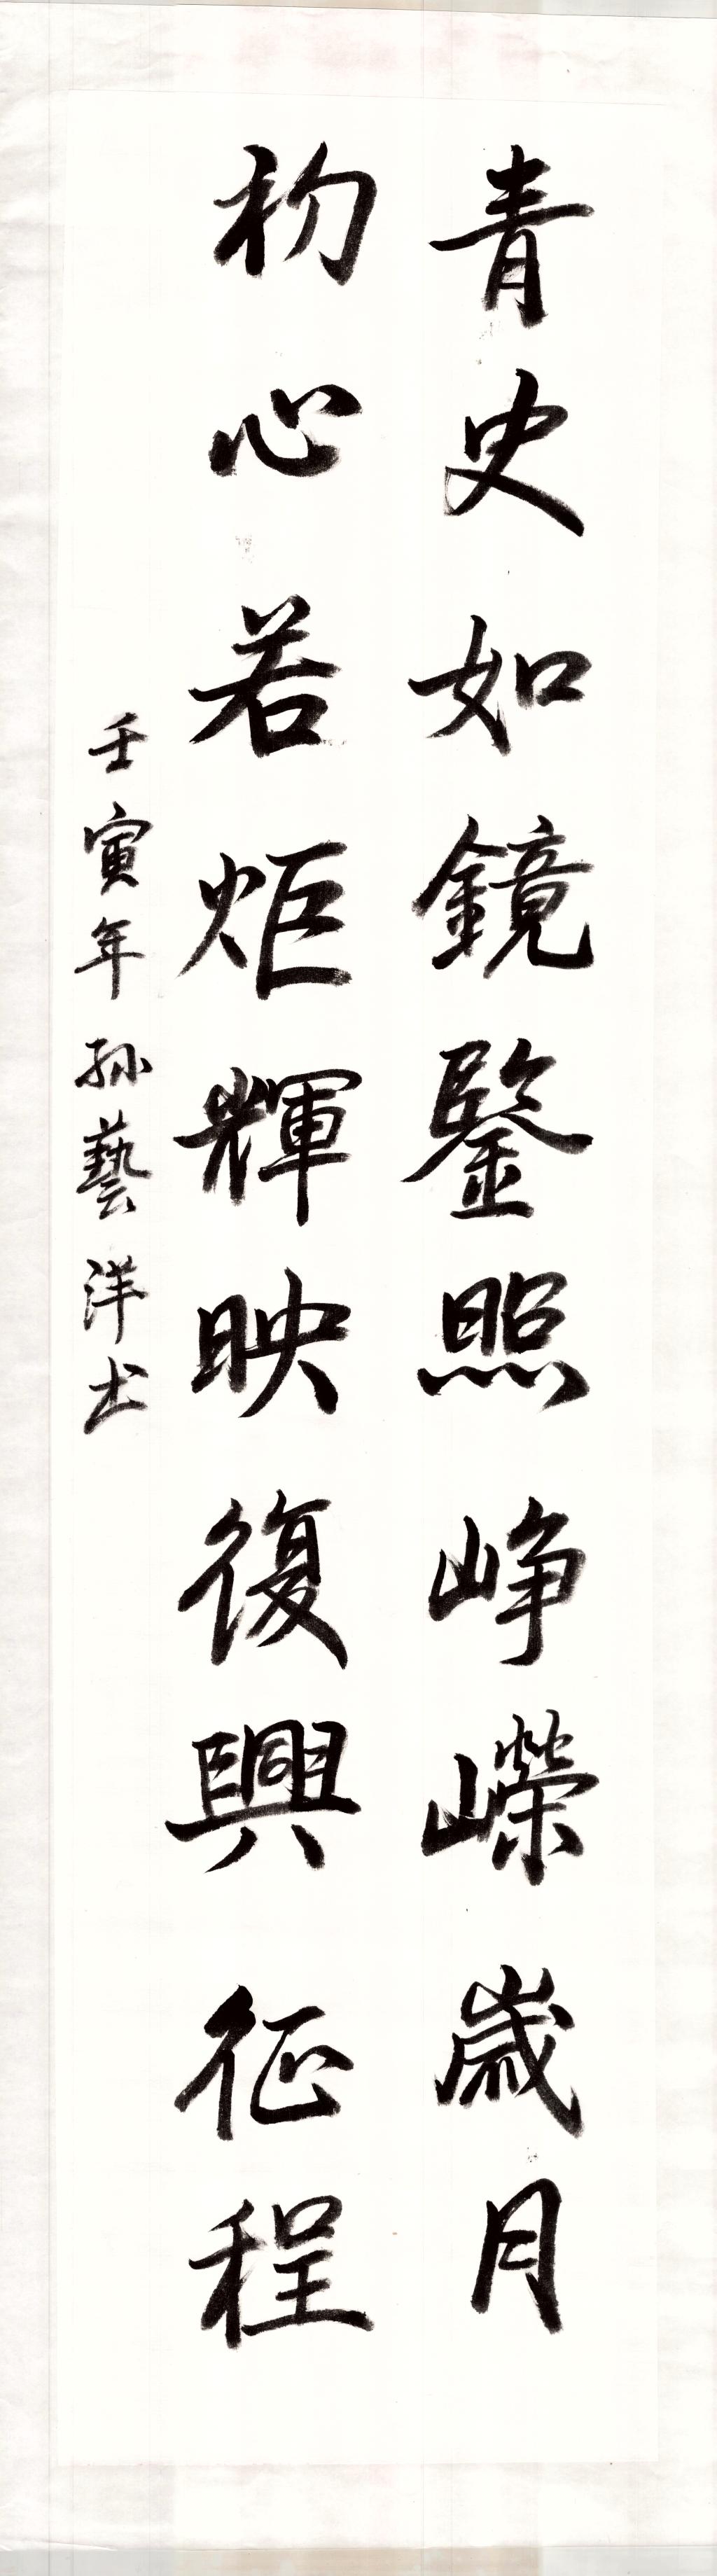 青史如鏡鑒照峥嶸歲月
初心若炬輝映復興征程
壬寅年孫藝洋书